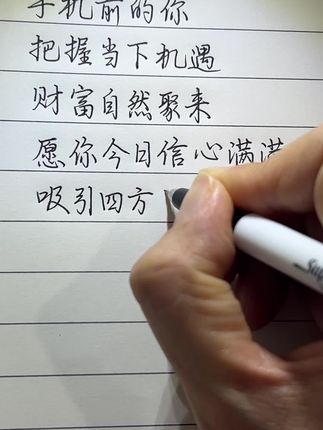 手机前的你
把握当下机遇
财富自然聚来
愿你今日信心满满
吸引四方